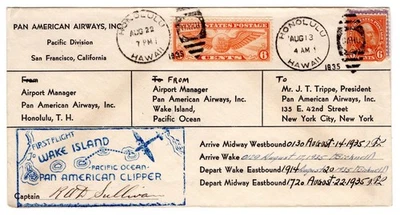 PAN AMERICAN AIRWAYS, INC.
Pacific Division
San Francisco, California
HONOLULU
AUG 22
7 PM
1935
HAWAII
6 CENTS 6
HONOLULU
AUG 13
4 AM
1935
HAWAII
6 6
From
Airport Manager
Pan American Airways, Inc.
Honolulu, T. H.
To FROM
Airport Manager
Pan American Airways, Inc.
Wake Island,
Pacific Ocean
To
Mr. J. T. Trippe, President
Pan American Airways, Inc.
135 E. 42nd Street
New York City, New York
FIRST FLIGHT
TO
WAKE ISLAND
PACIFIC OCEAN
PAN AMERICAN CLIPPER
Captain
Sullivan
Arrive Midway Westbound 0130 August 14-1935
Arrive Wake August 17, 1935
Depart Wake Eastbound 1914 August 20 1935
Depart Midway Eastbound 1720 August 22 1935